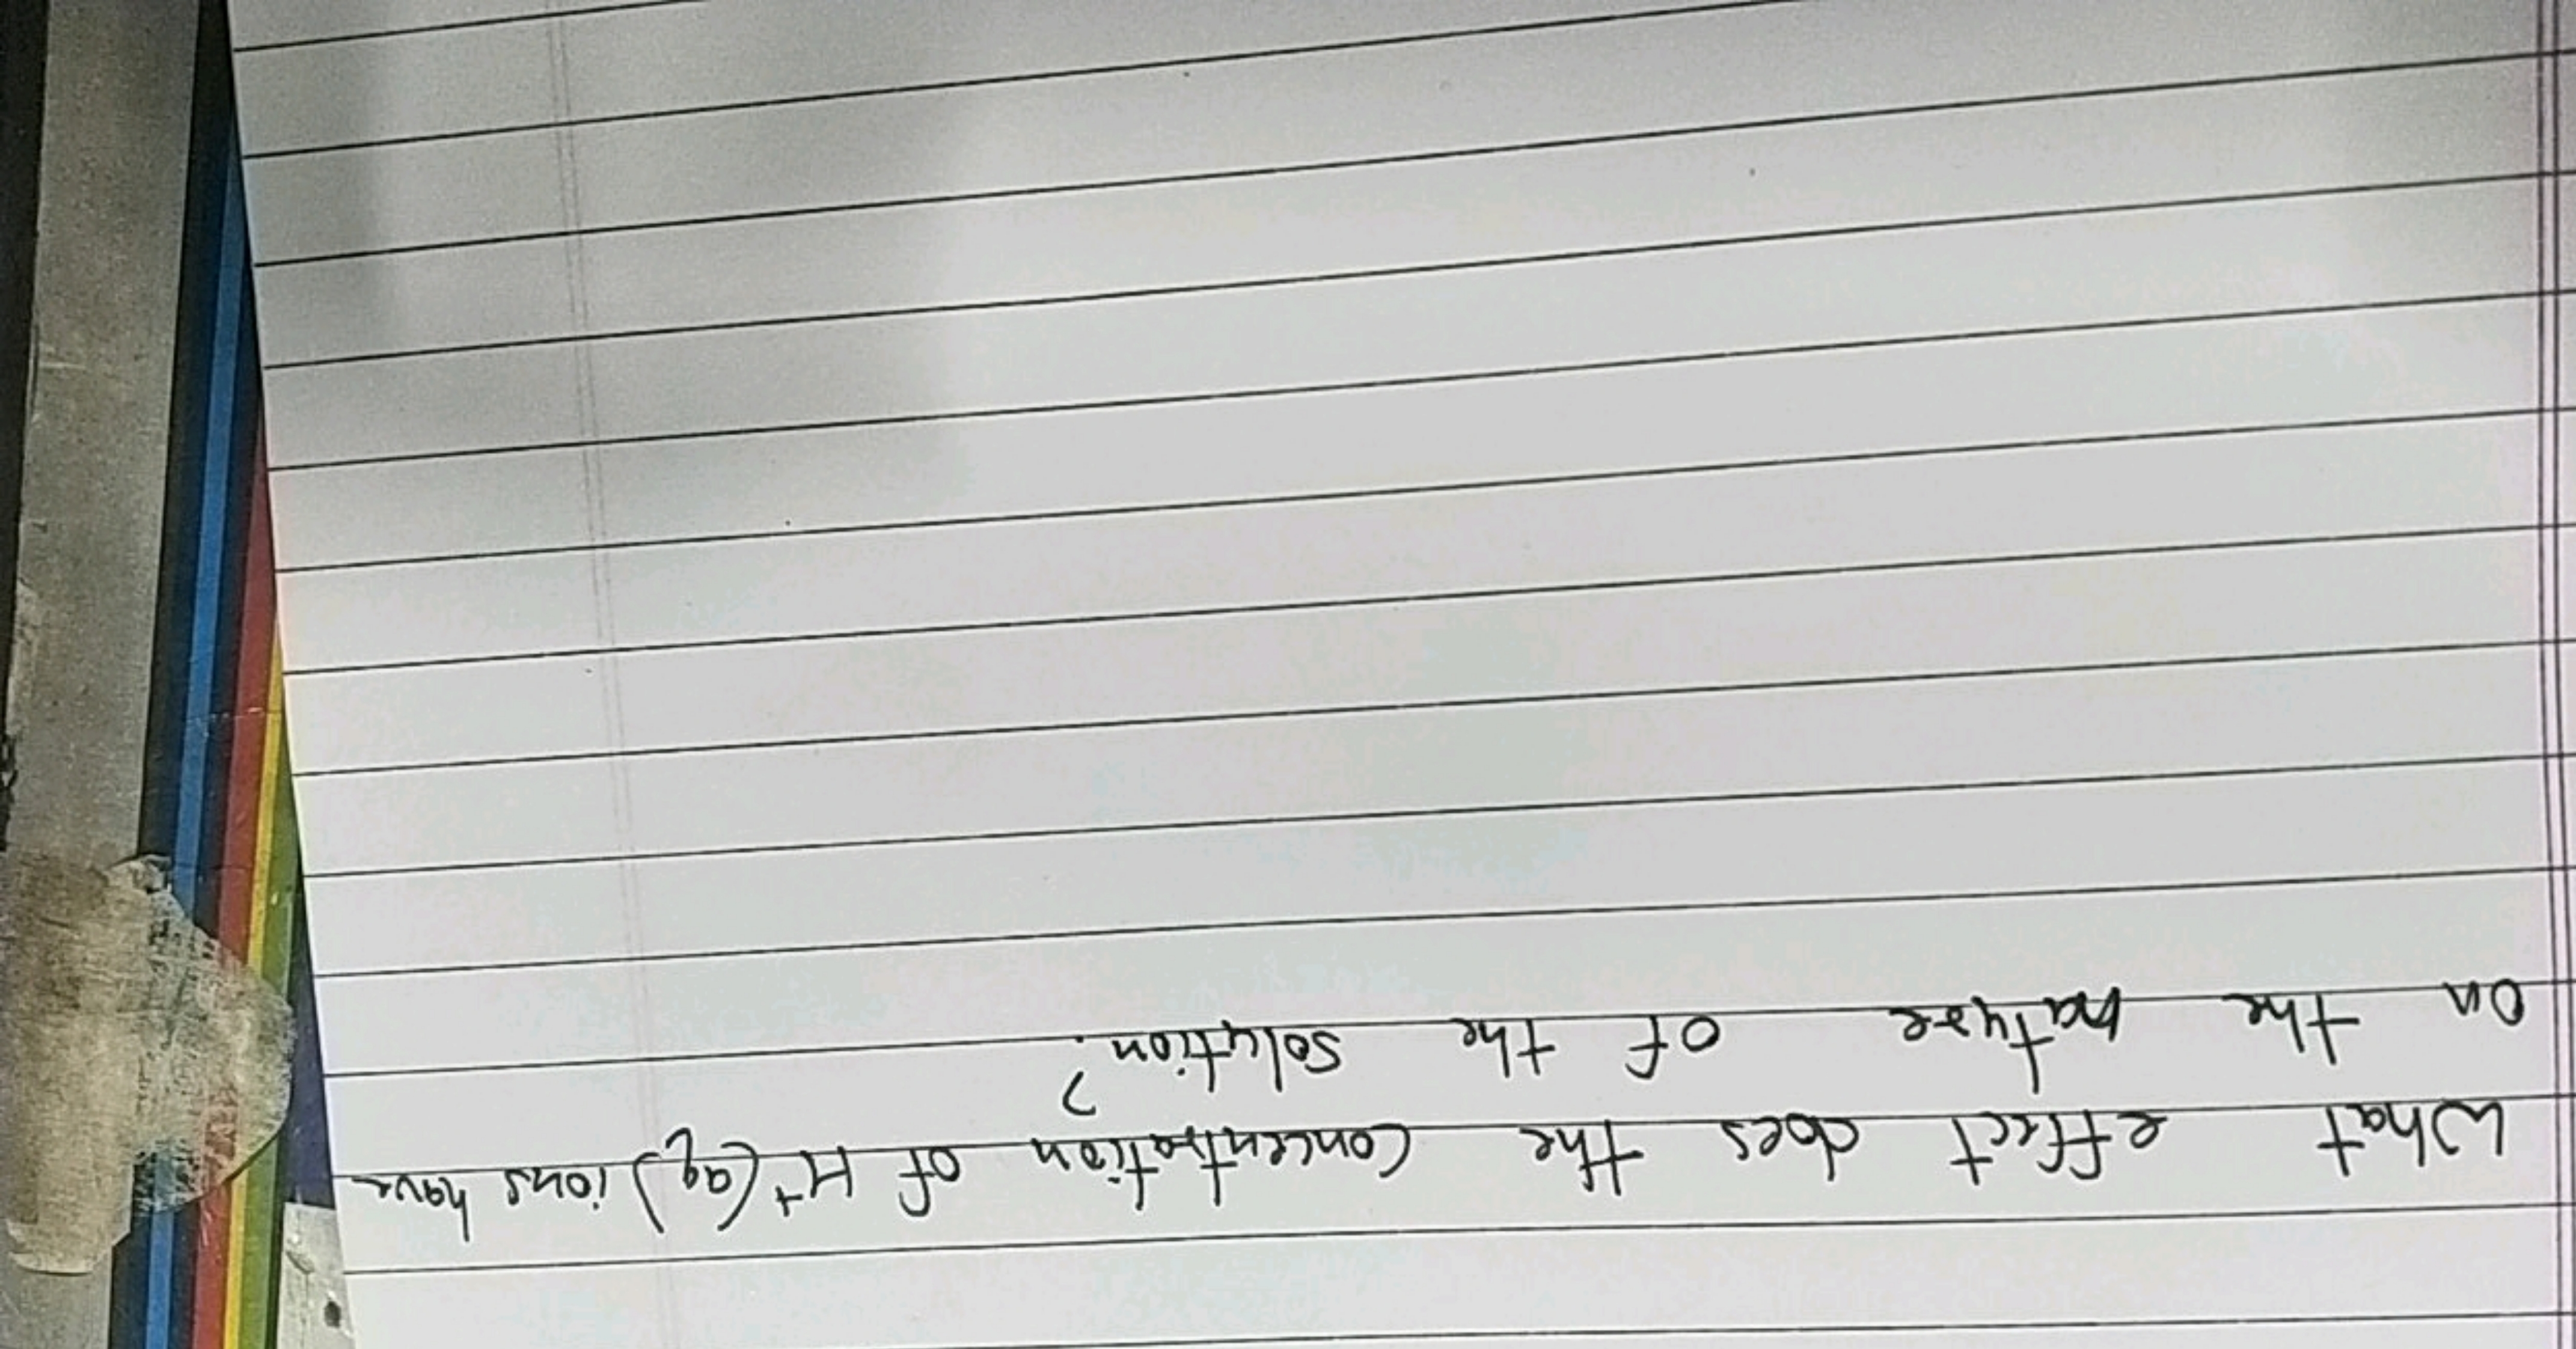 What effect does the concentration of H+(aq) ions have
on the nature of the solution?